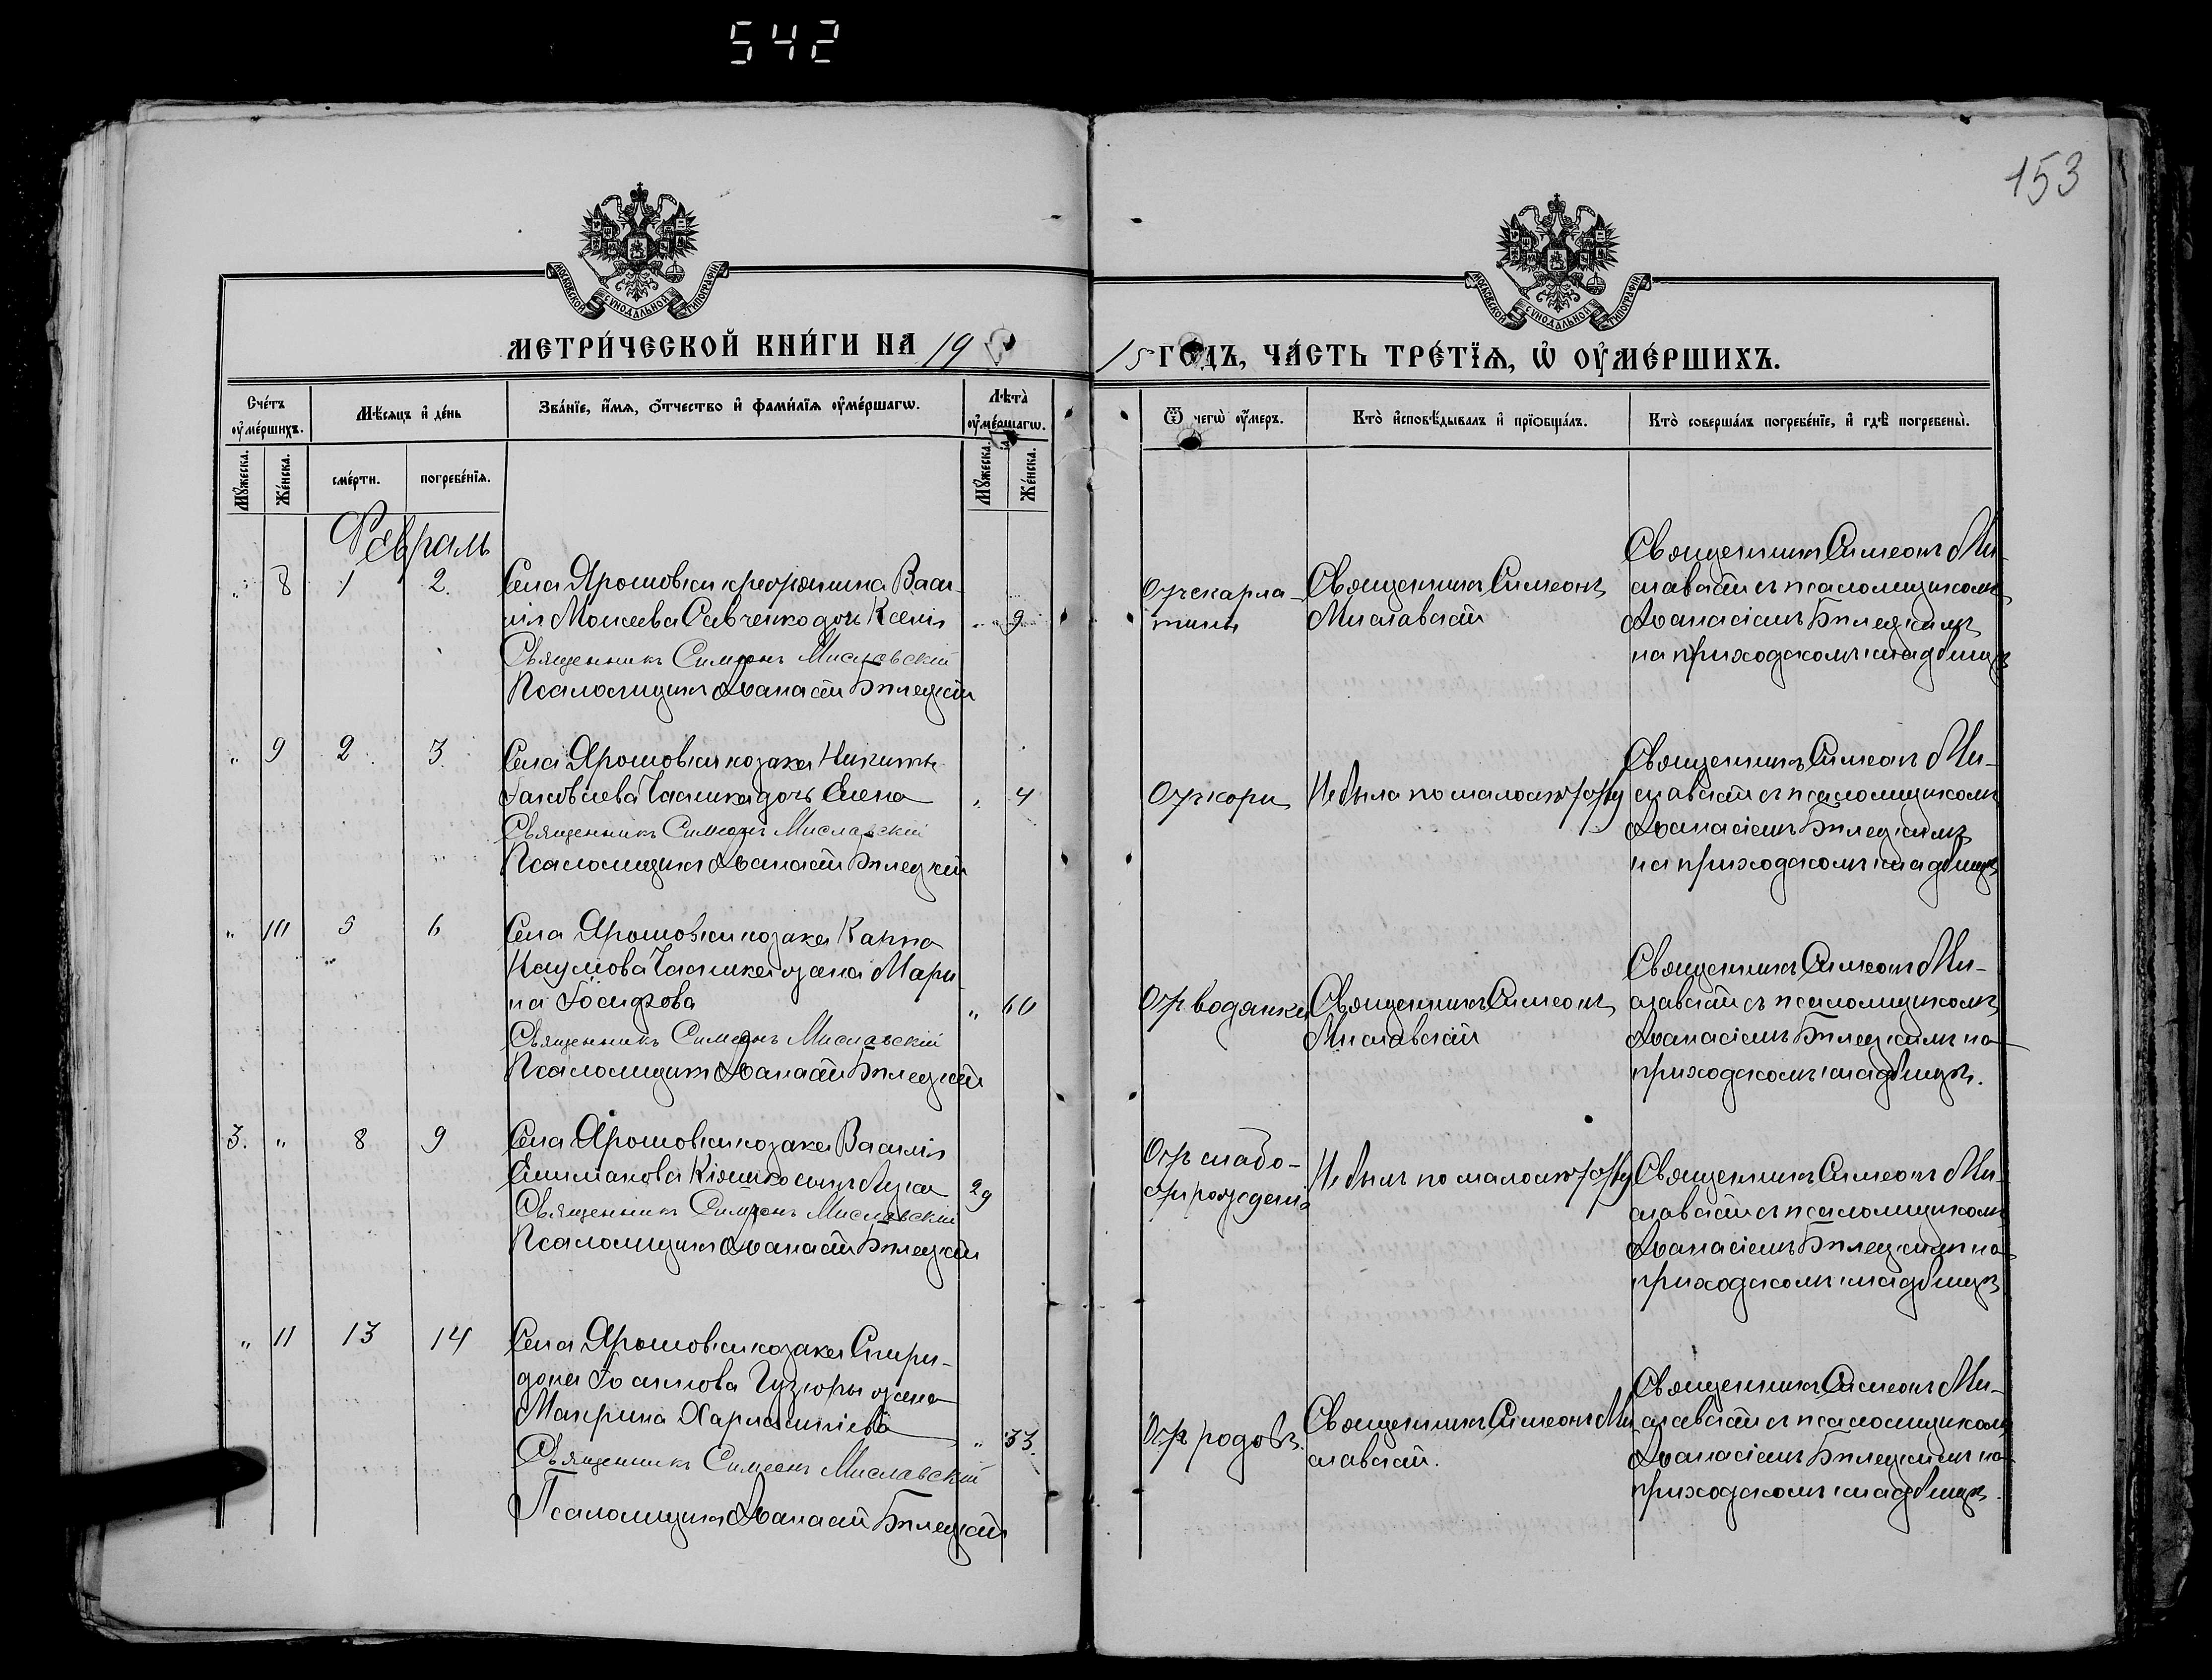 542
153
МОСКОВСКОЙ СУНОДАЛЬНОЙ ТИПОГРАФІИ
МОСКОВСКОЙ СУНОДАЛЬНОЙ ТИПОГРАФІИ
МЕТРИ́ЧЕСКОЙ КНИ́ГИ НА 19
15 ГОДЪ, ЧА́СТЬ ТРЕ́ТЇѦ, Ѡ҆ ОУ҆МЕ́РШИХЪ.
Сче́тъ оу҆ме́ршихъ.
Мѣ́сѧцъ и҆ де́нь
Зва́нїе, и҆́мѧ, ѻ҆́тчество и҆ фами́лїѧ оу҆ме́ршагѡ.
Лѣта̀ оу҆ме́ршагѡ.
Ѿ чегѡ̀ оу҆́меръ.
Кто̀ и҆сповѣ́дывалъ и҆ прїѡбща́лъ.
Кто̀ соверша́лъ погребе́нїе, и҆ гдѣ̀ погребены̀.
Мꙋ́жеска.
Же́нска.
сме́рти.
погребе́нїѧ.
Мꙋ́жеска.
Же́нска.
Февраль
" 8 1 2.
Села Ярошовки крестьянина Васи-
лія Моисеева Савченко дочь Ксенія " 9
Священникъ Симеонъ Миславскій
Псаломщикъ Аѳанасій Бѣлецкій
Отъ скарла-
тины
Священникъ Симеонъ
Миславскій
Священникъ Симеонъ Ми-
славскій съ псаломщикомъ
Аѳанасіемъ Бѣлецкимъ
на приходскомъ кладбищѣ
" 9 2 3.
Села Ярошовки козака Никиты
Іаковлева дочь Елена " 4
Священникъ Симеонъ Миславскій
Псаломщикъ Аѳанасій Бѣлецкій
Отъ кори
Не была по малолѣтству
Священникъ Симеонъ Ми-
славскій съ псаломщикомъ
Аѳанасіемъ Бѣлецкимъ
на приходскомъ кладбищѣ
" 10 5 6
Села Ярошовки козака Карпа
Наумова жена Мари-
на Іосифова " 60
Священникъ Симеонъ Миславскій
Псаломщикъ Аѳанасій Бѣлецкій
Отъ водянки
Священникъ Симеонъ
Миславскій
Священникъ Симеонъ Ми-
славскій съ псаломщикомъ
Аѳанасіемъ Бѣлецкимъ на
приходскомъ кладбищѣ.
3. " 8 9
Села Ярошовки козака Василія
сынъ Лука
Священникъ Симеонъ Миславскій
Псаломщикъ Аѳанасій Бѣлецкій
Отъ слабо-
рожденія
Не былъ по малолѣтству
Священникъ Симеонъ Ми-
славскій съ псаломщикомъ
Аѳанасіемъ Бѣлецкимъ на
приходскомъ кладбищѣ
" 11 13 14
Села Ярошовки козака Спири-
дона жена
Макрина Харлампіева " 33.
Священникъ Симеонъ Миславскій
Псаломщикъ Аѳанасій Бѣлецкій
Отъ родовъ.
Священникъ Симеонъ Ми
славскій.
Священникъ Симеонъ Ми-
славскій съ псаломщикомъ
Аѳанасіемъ Бѣлецкимъ на
приходскомъ кладбищѣ.